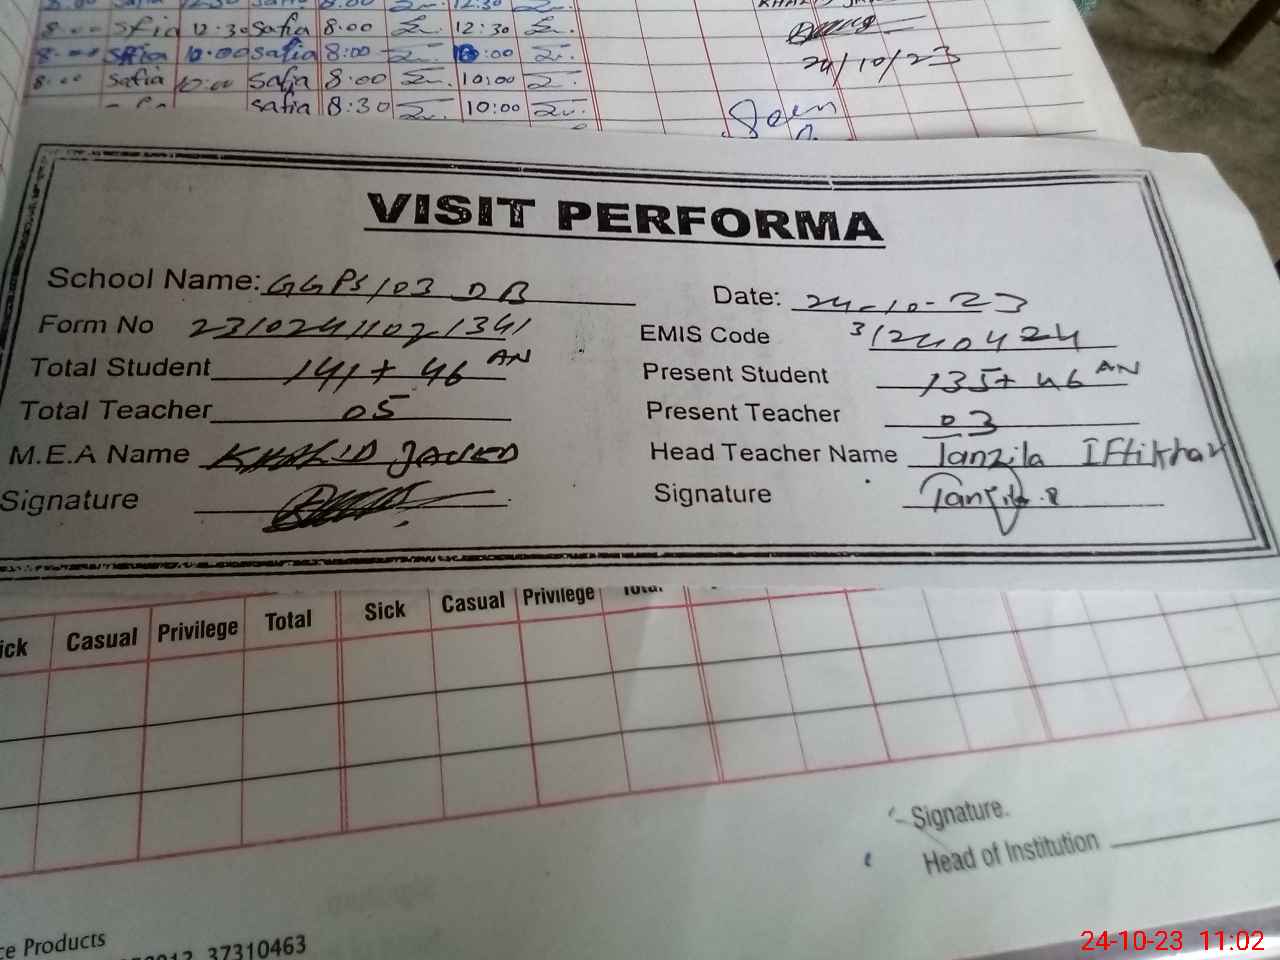 8:00 Safia 12:30 Safia 8:00 12:30
8:00 Safia 10:00 Safia 8:00 10:00
8:00 Safia 10:00 Safia 8:00 10:00
Safia 8:30 10:00
24/10/23
VISIT PERFORMA
School Name: GGPS/103 DB Date: 24-10-23
Form No EMIS Code 31240424
Total Student 141+46 AN Present Student 135+46 AN
Total Teacher 05 Present Teacher 03
M.E.A Name KHALID JAVED Head Teacher Name Tanzila Iftikhar
Signature Signature Tanzila
Casual Privilege Total Sick Casual Privilege Total
Signature.
Head of Institution
Products
37310463
24-10-23 11:02